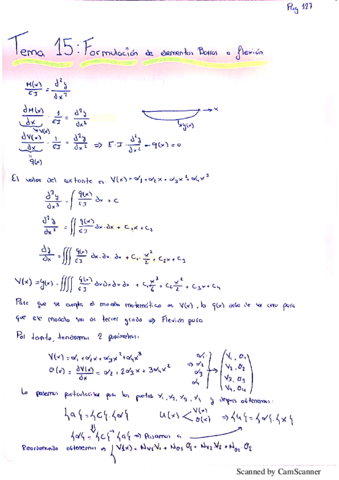 Pag 127
Tema 15: Formulación de elementos Barra a flexión
M(x)/EJ = d²y/dx²
dM(x)/dx · 1/EJ = d³y/dx³
V(x)
dV(x)/dx · 1/EJ = ⇒ E·J - q(x) = 0
q(x)
y(x)
x
El valor del cortante es V(x) = α1 + α2x + α3x² α4x³
d³y/dx³ = ∫ q(x)/EJ dx + C
d²y/dx² = ∫∫ q(x)/EJ dx·dx + C1x + C2
dy/dx = ∫∫∫ q(x)/EJ dx·dx·dx + C1·x²/2 + C2x + C3
V(x) = y(x) = ∫∫∫∫ q(x)/EJ dx dx dx dx + C1 x³/6 + C2 x²/2 + C3x + C4
Para que se cumpla el modelo matemático en V(x), la q(x) debe de ser cero para
que ese modelo sea de tercer grado ⇒ Flexión pura
Por tanto, tendremos 2 parámetros:
V(x) = α1 + α2x + α3x² + α4x³
θ(x) = dV(x)/dx = α2 + 2α3x + 3α4x²
α1 α2 α3 α4
Lo podemos particularizar por los puntos y después obtenemos:
{a} = [C]·{α} U(x) < V(x) θ(x) ⇒ {u} = {α}·{x}
{α} = [C]⁻¹{a} ⇒ Pasamos a
Reordenando obtenemos ⇒ V(x) = Nv1V1 + Nθ1 θ1 + Nv2V2 + Nθ2 θ2
Scanned by CamScanner